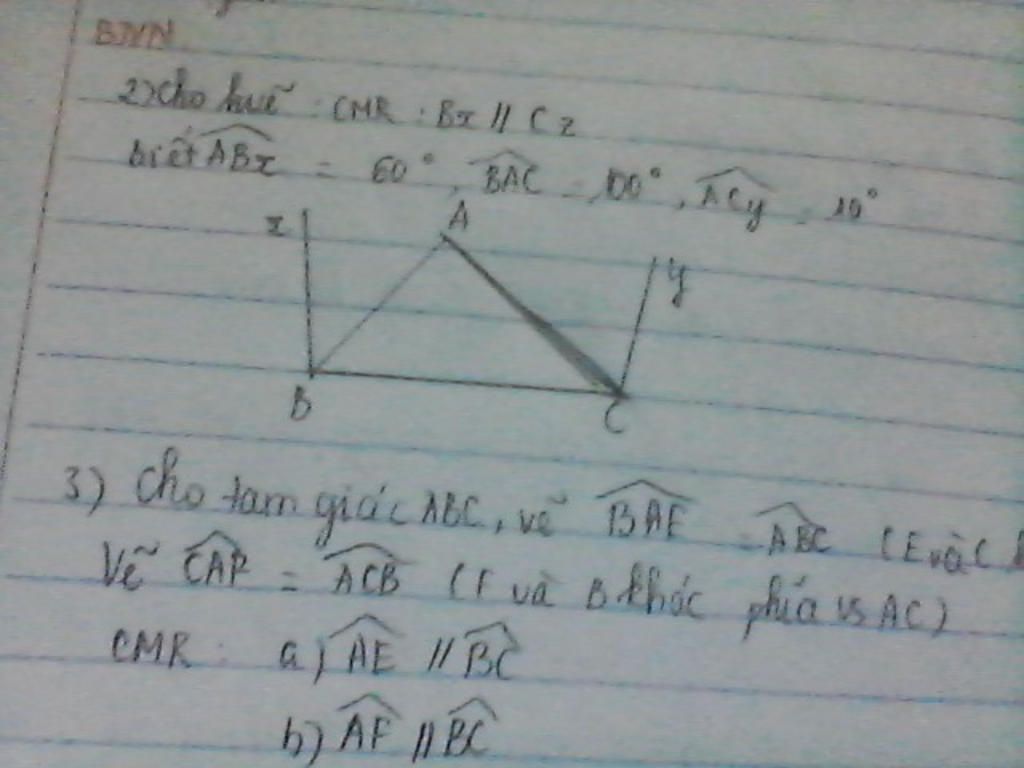 2) Cho hvẽ : CMR : Bx // Cz
biết ABx = 60°, BAC = 100°, ACy = 10°
x A y
B C
3) Cho tam giác ABC, vẽ BAE = ABC (E và C
Vẽ CAF = ACB (F và B khác phía vs AC)
CMR : a) AE // BC
b) AF // BC